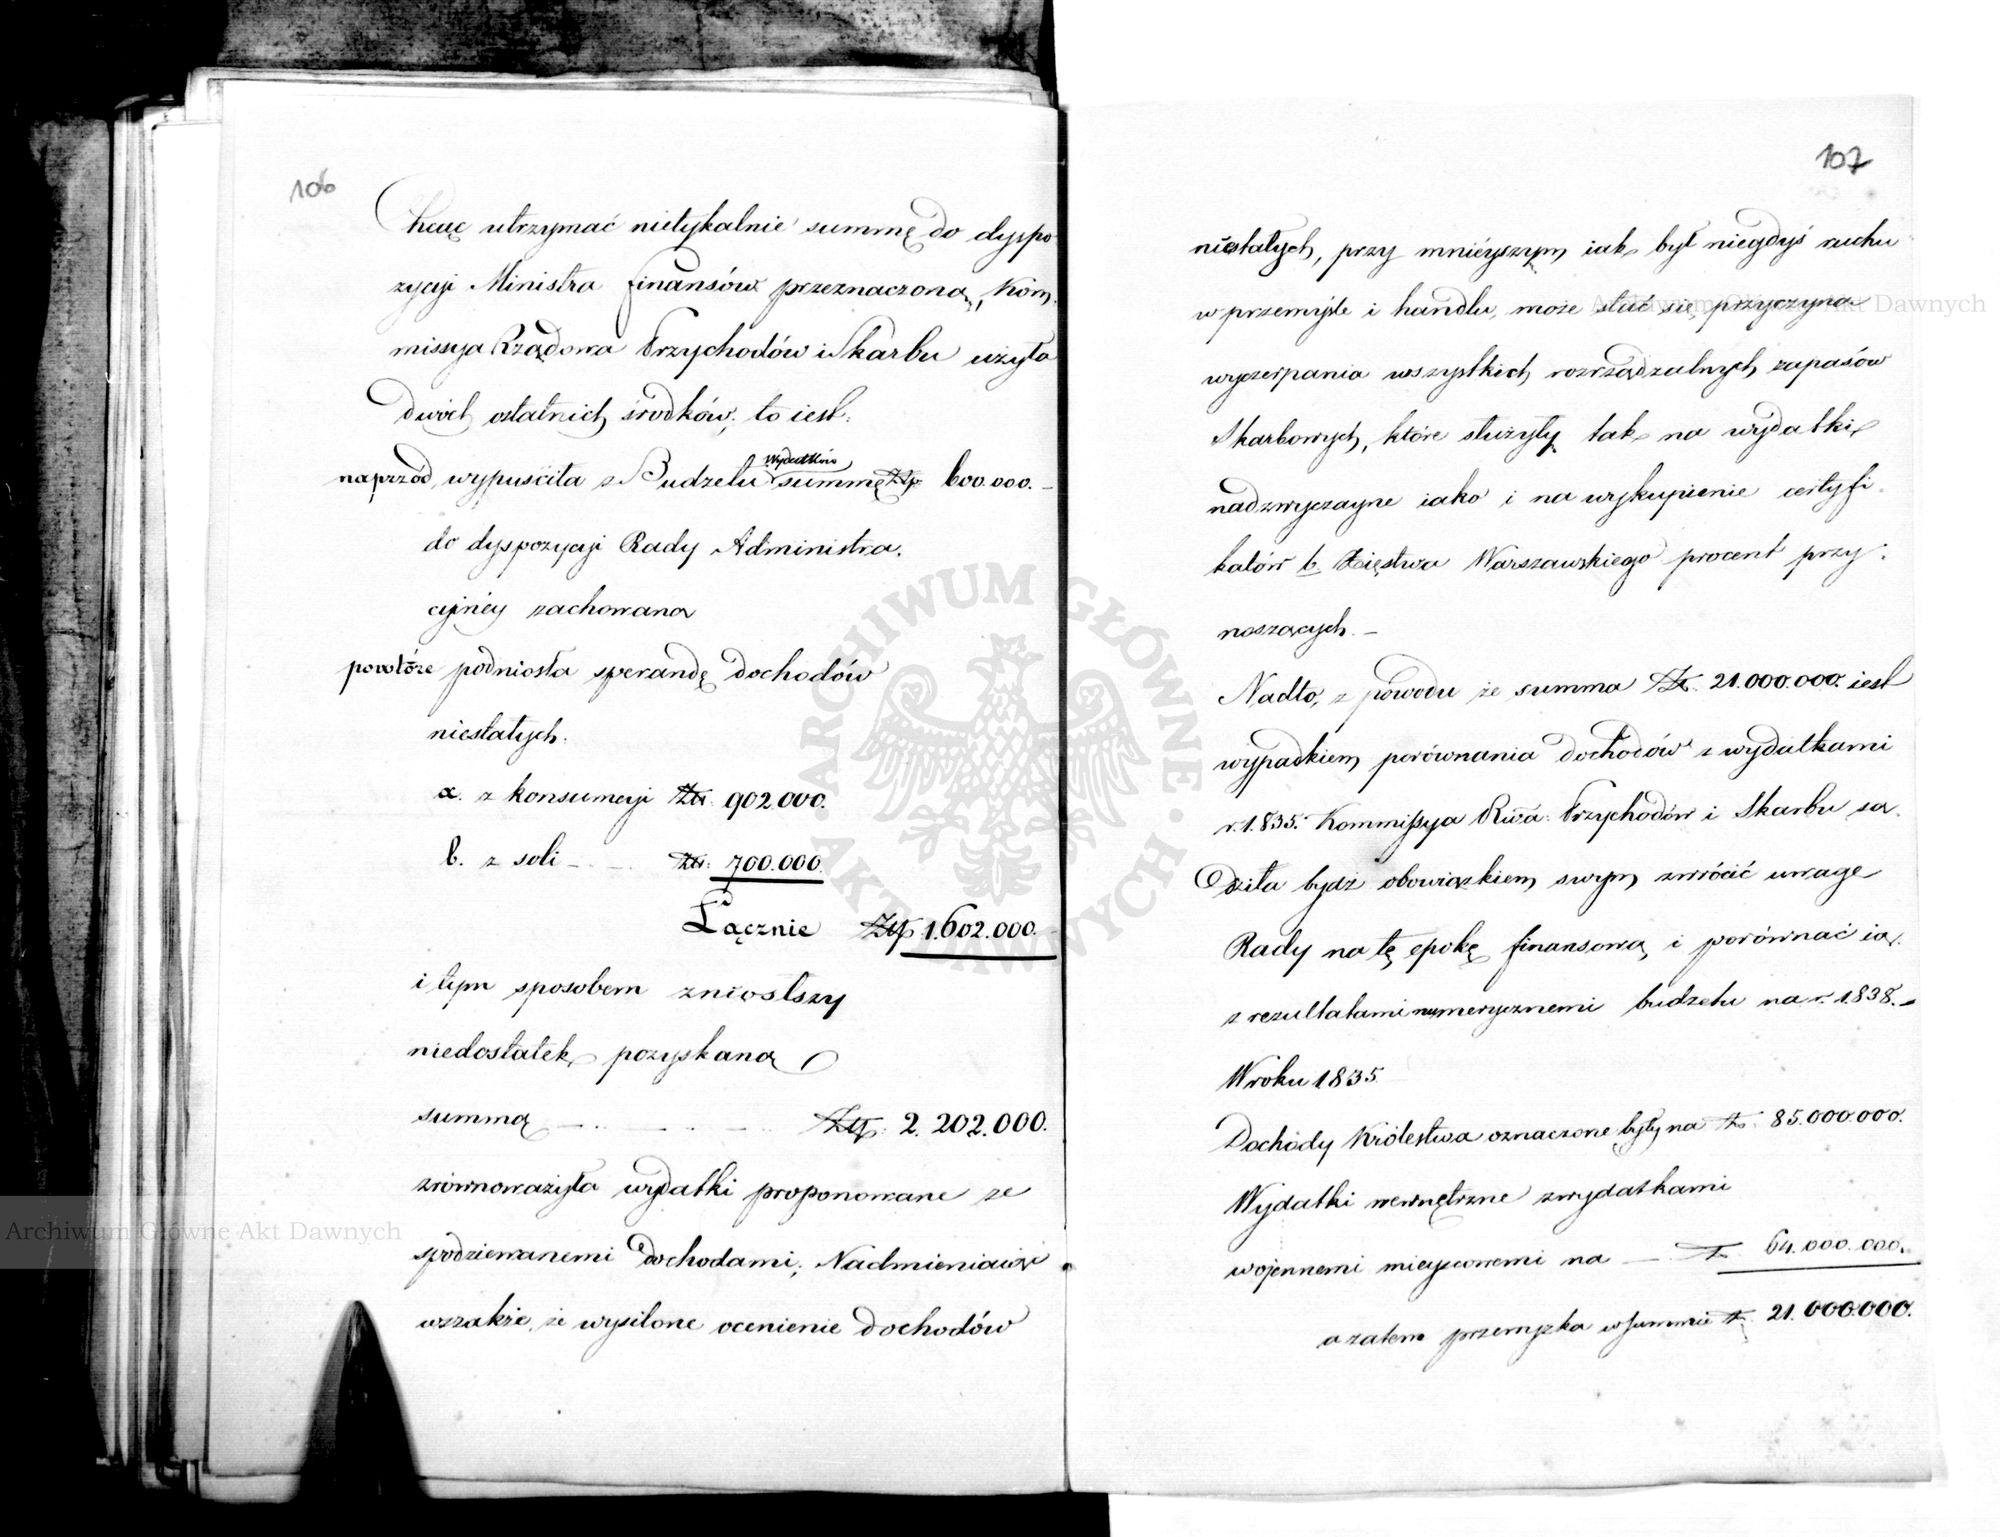 106
Chcąc utrzymać nietykalnie summę do dyspo
zycyi Ministra Finansów przeznaczoną, Kom.
missya Rządowa Przychodów i Skarbu użyła
dwóch ostatnich środków, to iest:
Wydatków
naprzód, wypuściła z Budżetu summę Złp. 600.000.
do dyspozycyi Rady Administra.
cyjnéy zachowaną
powtóre podniosła sperandę dochodów
niestałych.
a. z konsumcyi Złt. 902.000.
b. z soli — Złt. 700.000.
Łącznie Złp 1.602.000.
i tym sposobem zniósłszy
niedostatek, pozyskaną
summą — Złp. 2.202.000.
zrównoważyła wydatki proponowane ze
spodziewanemi dochodami; Nadmieniaiąc
wszakże, że wysilone ocenienie dochodów
107
niestałych, przy mnieyszym iak był niegdyś ruchu
w przemyśle i handlu, może stać się przyczyną
wyczerpania wszystkich rozrządzalnych zapasów
Skarbowych, które służyły tak na wydatki
nadzwyczayne iako i na wykupienie certyfi.
katów b. Xięstwa Warszawskiego procent przy.
noszących. —
Nadto, z powodu że summa Zł. 21.000.000. iest
wypadkiem porównania dochodów z wydatkami
r. 1835. Kommissya Rwa: Przychodów i Skarbu są.
dziła bydź obowiązkiem swym zwrócić uwagę
Rady na tę epokę finansową, i porównać ią.
z rezultatami numerycznemi budżetu na r. 1838. —
W roku 1835
Dochody Królestwa oznaczone były na Zł. 85.000.000.
Wydatki wewnętrzne z wydatkami
wojennemi mieyscowemi na — Zł. 64.000.000.
a zatem przewyżka w summie Zł. 21.000.000.
Archiwum Główne Akt Dawnych
Archiwum Główne Akt Dawnych
ARCHIWUM GŁÓWNE AKT DAWNYCH